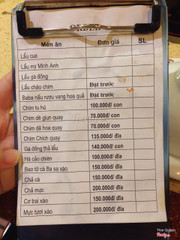 Món ăn Đơn giá SL
Lẩu cua
Lẩu mẹ Minh Anh
Lẩu gà đồng
Lẩu cháo chim Đặt trước
Baba nấu rượu vang hoa quả Đặt trước
Chim tu hú 100,000đ/ con
Chim dẽ giun quay 70.000đ/ con
Chim dẽ hoa quay 70,000đ/ con
Chim Chích quay 135,000đ/ đĩa
Gà đồng thả lẩu 140,000đ/ con
Há cảo chiên 100,000đ/ đĩa
Bao tử cá Ba sa xào 150,000đ/ đĩa
Chả cá 150,000đ/ đĩa
Chả mực 200,000đ/ đĩa
Cơ trai xào 150,000đ/ đĩa
Mực tươi xào 200,000đ/ đĩa